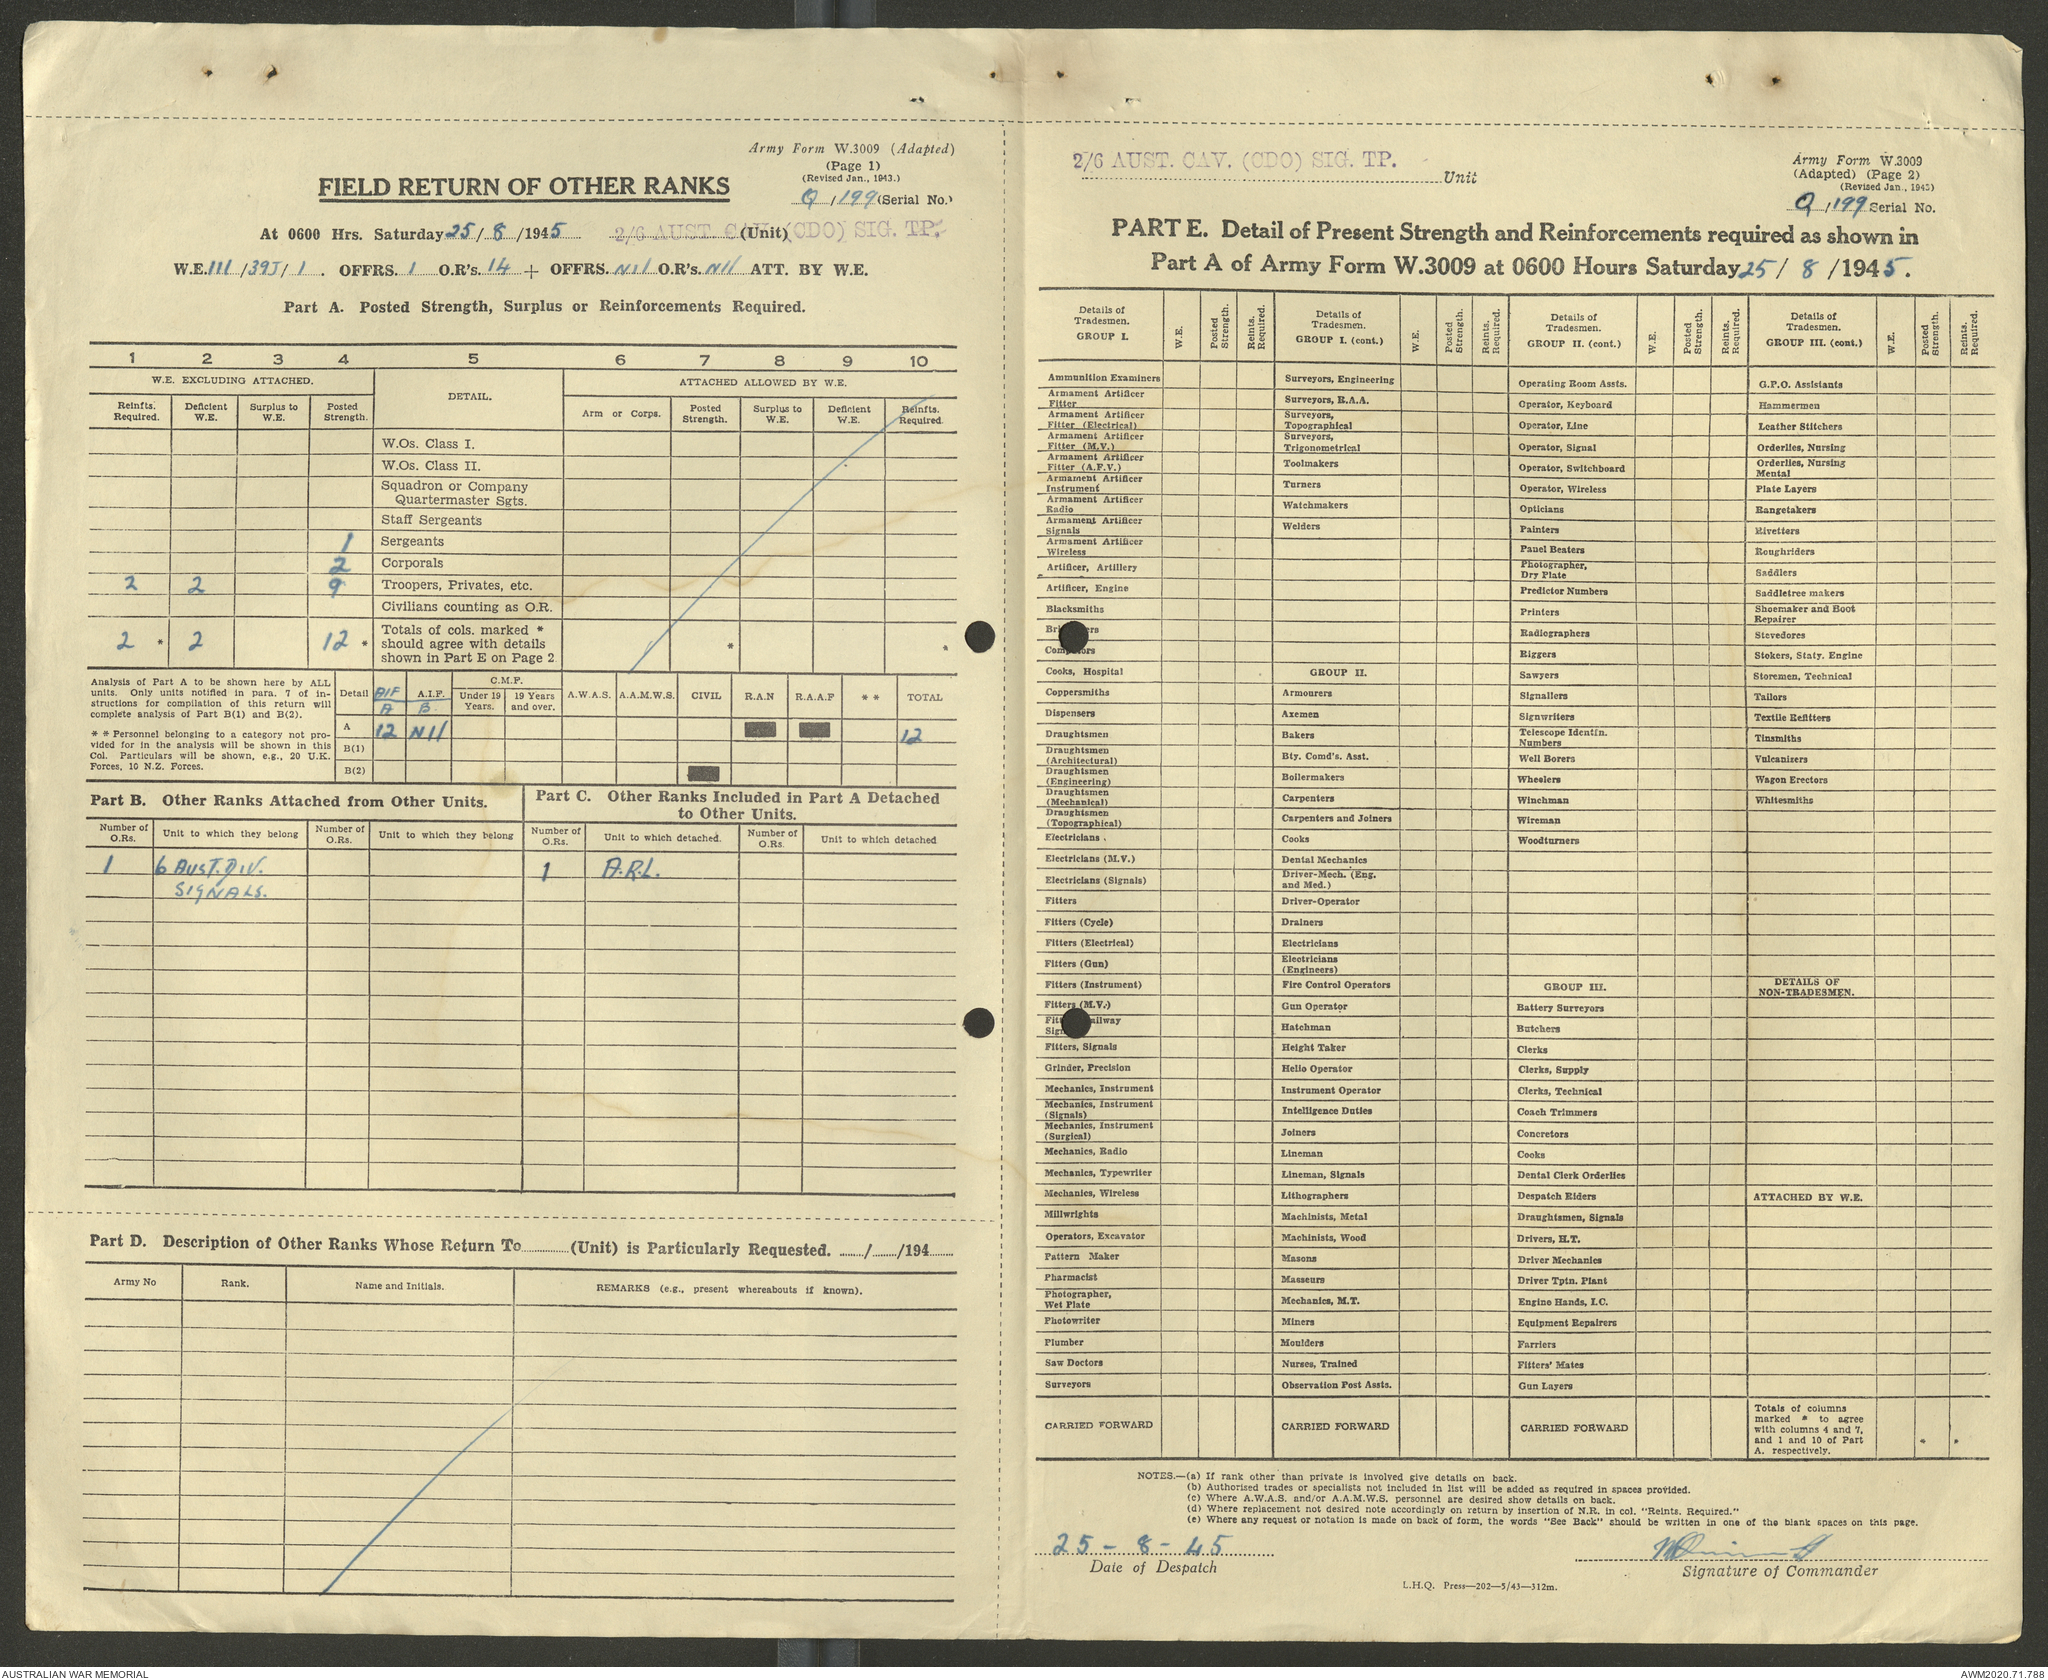 Army Form W.3009 (Adapted)
(Page 1)
(Revised Jan., 1943.)
FIELD RETURN OF OTHER RANKS
Q/199 (Serial No.)
At 0600 Hrs. Saturday 25/8/1945 2/6 AUST. CAV. (CDO) SIG. TP. (Unit)
W.E. 111/39J/1. OFFRS. 1 O.R's. 14 + OFFRS. Nil O.R's. Nil ATT. BY W.E.
Part A. Posted Strength, Surplus or Reinforcements Required.
1 2 3 4 5 6 7 8 9 10
W.E. EXCLUDING ATTACHED. DETAIL. ATTACHED ALLOWED BY W.E.
Reinfts. Required. Deficient W.E. Surplus to W.E. Posted Strength. Arm or Corps. Posted Strength. Surplus to W.E. Deficient W.E. Reinfts. Required.
W.Os. Class I.
W.Os. Class II.
Squadron or Company
Quartermaster Sgts.
Staff Sergeants
1 Sergeants
2 Corporals
2 2 9 Troopers, Privates, etc.
Civilians counting as O.R.
2 * 2 12 * Totals of cols. marked * * *
should agree with details
shown in Part E on Page 2
Analysis of Part A to be shown here by ALL
units. Only units notified in para. 7 of in-
structions for compilation of this return will
complete analysis of Part B(1) and B(2).
* * Personnel belonging to a category not pro-
vided for in the analysis will be shown in this
Col. Particulars will be shown, e.g., 20 U.K.
Forces, 10 N.Z. Forces.
Detail AIF A A.I.F. B. C.M.F. Under 19 Years. 19 Years and over. A.W.A.S. A.A.M.W.S. CIVIL R.A.N R.A.A.F * * TOTAL
A 12 Nil 12
B(1)
B(2)
Part B. Other Ranks Attached from Other Units.
Number of O.Rs. Unit to which they belong Number of O.Rs. Unit to which they belong
1 6 AUST. DIV.
SIGNALS.
Part C. Other Ranks Included in Part A Detached
to Other Units.
Number of O.Rs. Unit to which detached. Number of O.Rs. Unit to which detached
1 A.R.L.
Part D. Description of Other Ranks Whose Return To (Unit) is Particularly Requested. / /194
Army No Rank. Name and Initials. REMARKS (e.g., present whereabouts if known).
2/6 AUST. CAV. (CDO) SIG. TP. Unit
Army Form W.3009
(Adapted) (Page 2)
(Revised Jan., 1943)
Q/199 Serial No.
PART E. Detail of Present Strength and Reinforcements required as shown in
Part A of Army Form W.3009 at 0600 Hours Saturday 25/8/1945.
Details of Tradesmen. GROUP I. W.E. Posted Strength. Reints. Required.
Ammunition Examiners
Armament Artificer
Fitter
Armament Artificer
Fitter (Electrical)
Armament Artificer
Fitter (M.V.)
Armament Artificer
Fitter (A.F.V.)
Armament Artificer
Instrument
Armament Artificer
Radio
Armament Artificer
Signals
Armament Artificer
Wireless
Artificer, Artillery
Artificer, Engine
Blacksmiths
Cooks, Hospital
Coppersmiths
Dispensers
Draughtsmen
Draughtsmen
(Architectural)
Draughtsmen
(Engineering)
Draughtsmen
(Mechanical)
Draughtsmen
(Topographical)
Electricians
Electricians (M.V.)
Electricians (Signals)
Fitters
Fitters (Cycle)
Fitters (Electrical)
Fitters (Gun)
Fitters (Instrument)
Fitters (M.V.)
Fitters, Signals
Grinder, Precision
Mechanics, Instrument
Mechanics, Instrument
(Signals)
Mechanics, Instrument
(Surgical)
Mechanics, Radio
Mechanics, Typewriter
Mechanics, Wireless
Millwrights
Operators, Excavator
Pattern Maker
Pharmacist
Photographer,
Wet Plate
Photowriter
Plumber
Saw Doctors
Surveyors
CARRIED FORWARD
Details of Tradesmen. GROUP I. (cont.) W.E. Posted Strength. Reints. Required.
Surveyors, Engineering
Surveyors, R.A.A.
Surveyors,
Topographical
Surveyors,
Trigonometrical
Toolmakers
Turners
Watchmakers
Welders
GROUP II.
Armourers
Axemen
Bakers
Bty. Comd's. Asst.
Boilermakers
Carpenters
Carpenters and Joiners
Cooks
Dental Mechanics
Driver-Mech. (Eng.
and Med.)
Driver-Operator
Drainers
Electricians
Electricians
(Engineers)
Fire Control Operators
Gun Operator
Hatchman
Height Taker
Helio Operator
Instrument Operator
Intelligence Duties
Joiners
Lineman
Lineman, Signals
Lithographers
Machinists, Metal
Machinists, Wood
Masons
Masseurs
Mechanics, M.T.
Miners
Moulders
Nurses, Trained
Observation Post Assts.
CARRIED FORWARD
Details of Tradesmen. GROUP II. (cont.) W.E. Posted Strength. Reints. Required.
Operating Room Assts.
Operator, Keyboard
Operator, Line
Operator, Signal
Operator, Switchboard
Operator, Wireless
Opticians
Painters
Panel Beaters
Photographer,
Dry Plate
Predictor Numbers
Printers
Radiographers
Riggers
Sawyers
Signallers
Signwriters
Telescope Identin.
Numbers
Well Borers
Wheelers
Winchman
Wireman
Woodturners
GROUP III.
Battery Surveyors
Butchers
Clerks
Clerks, Supply
Clerks, Technical
Coach Trimmers
Concretors
Cooks
Dental Clerk Orderlies
Despatch Riders
Draughtsmen, Signals
Drivers, H.T.
Driver Mechanics
Driver Tptn. Plant
Engine Hands, I.C.
Equipment Repairers
Farriers
Fitters' Mates
Gun Layers
CARRIED FORWARD
Details of Tradesmen. GROUP III. (cont.) W.E. Posted Strength. Reints. Required.
G.P.O. Assistants
Hammermen
Leather Stitchers
Orderlies, Nursing
Orderlies, Nursing
Mental
Plate Layers
Rangetakers
Rivetters
Roughriders
Saddlers
Saddletree makers
Shoemaker and Boot
Repairer
Stevedores
Stokers, Staty. Engine
Storemen, Technical
Tailors
Textile Refitters
Tinsmiths
Vulcanizers
Wagon Erectors
Whitesmiths
DETAILS OF
NON-TRADESMEN.
ATTACHED BY W.E.
Totals of columns
marked * to agree
with columns 4 and 7,
and 1 and 10 of Part
A. respectively. * *
NOTES.—(a) If rank other than private is involved give details on back.
(b) Authorised trades or specialists not included in list will be added as required in spaces provided.
(c) Where A.W.A.S. and/or A.A.M.W.S. personnel are desired show details on back.
(d) Where replacement not desired note accordingly on return by insertion of N.R. in col. "Reints. Required."
(e) Where any request or notation is made on back of form, the words "See Back" should be written in one of the blank spaces on this page.
25-8-45
Date of Despatch
Signature of Commander
L.H.Q. Press—202—5/43—312m.
AUSTRALIAN WAR MEMORIAL
AWM2020.71.788